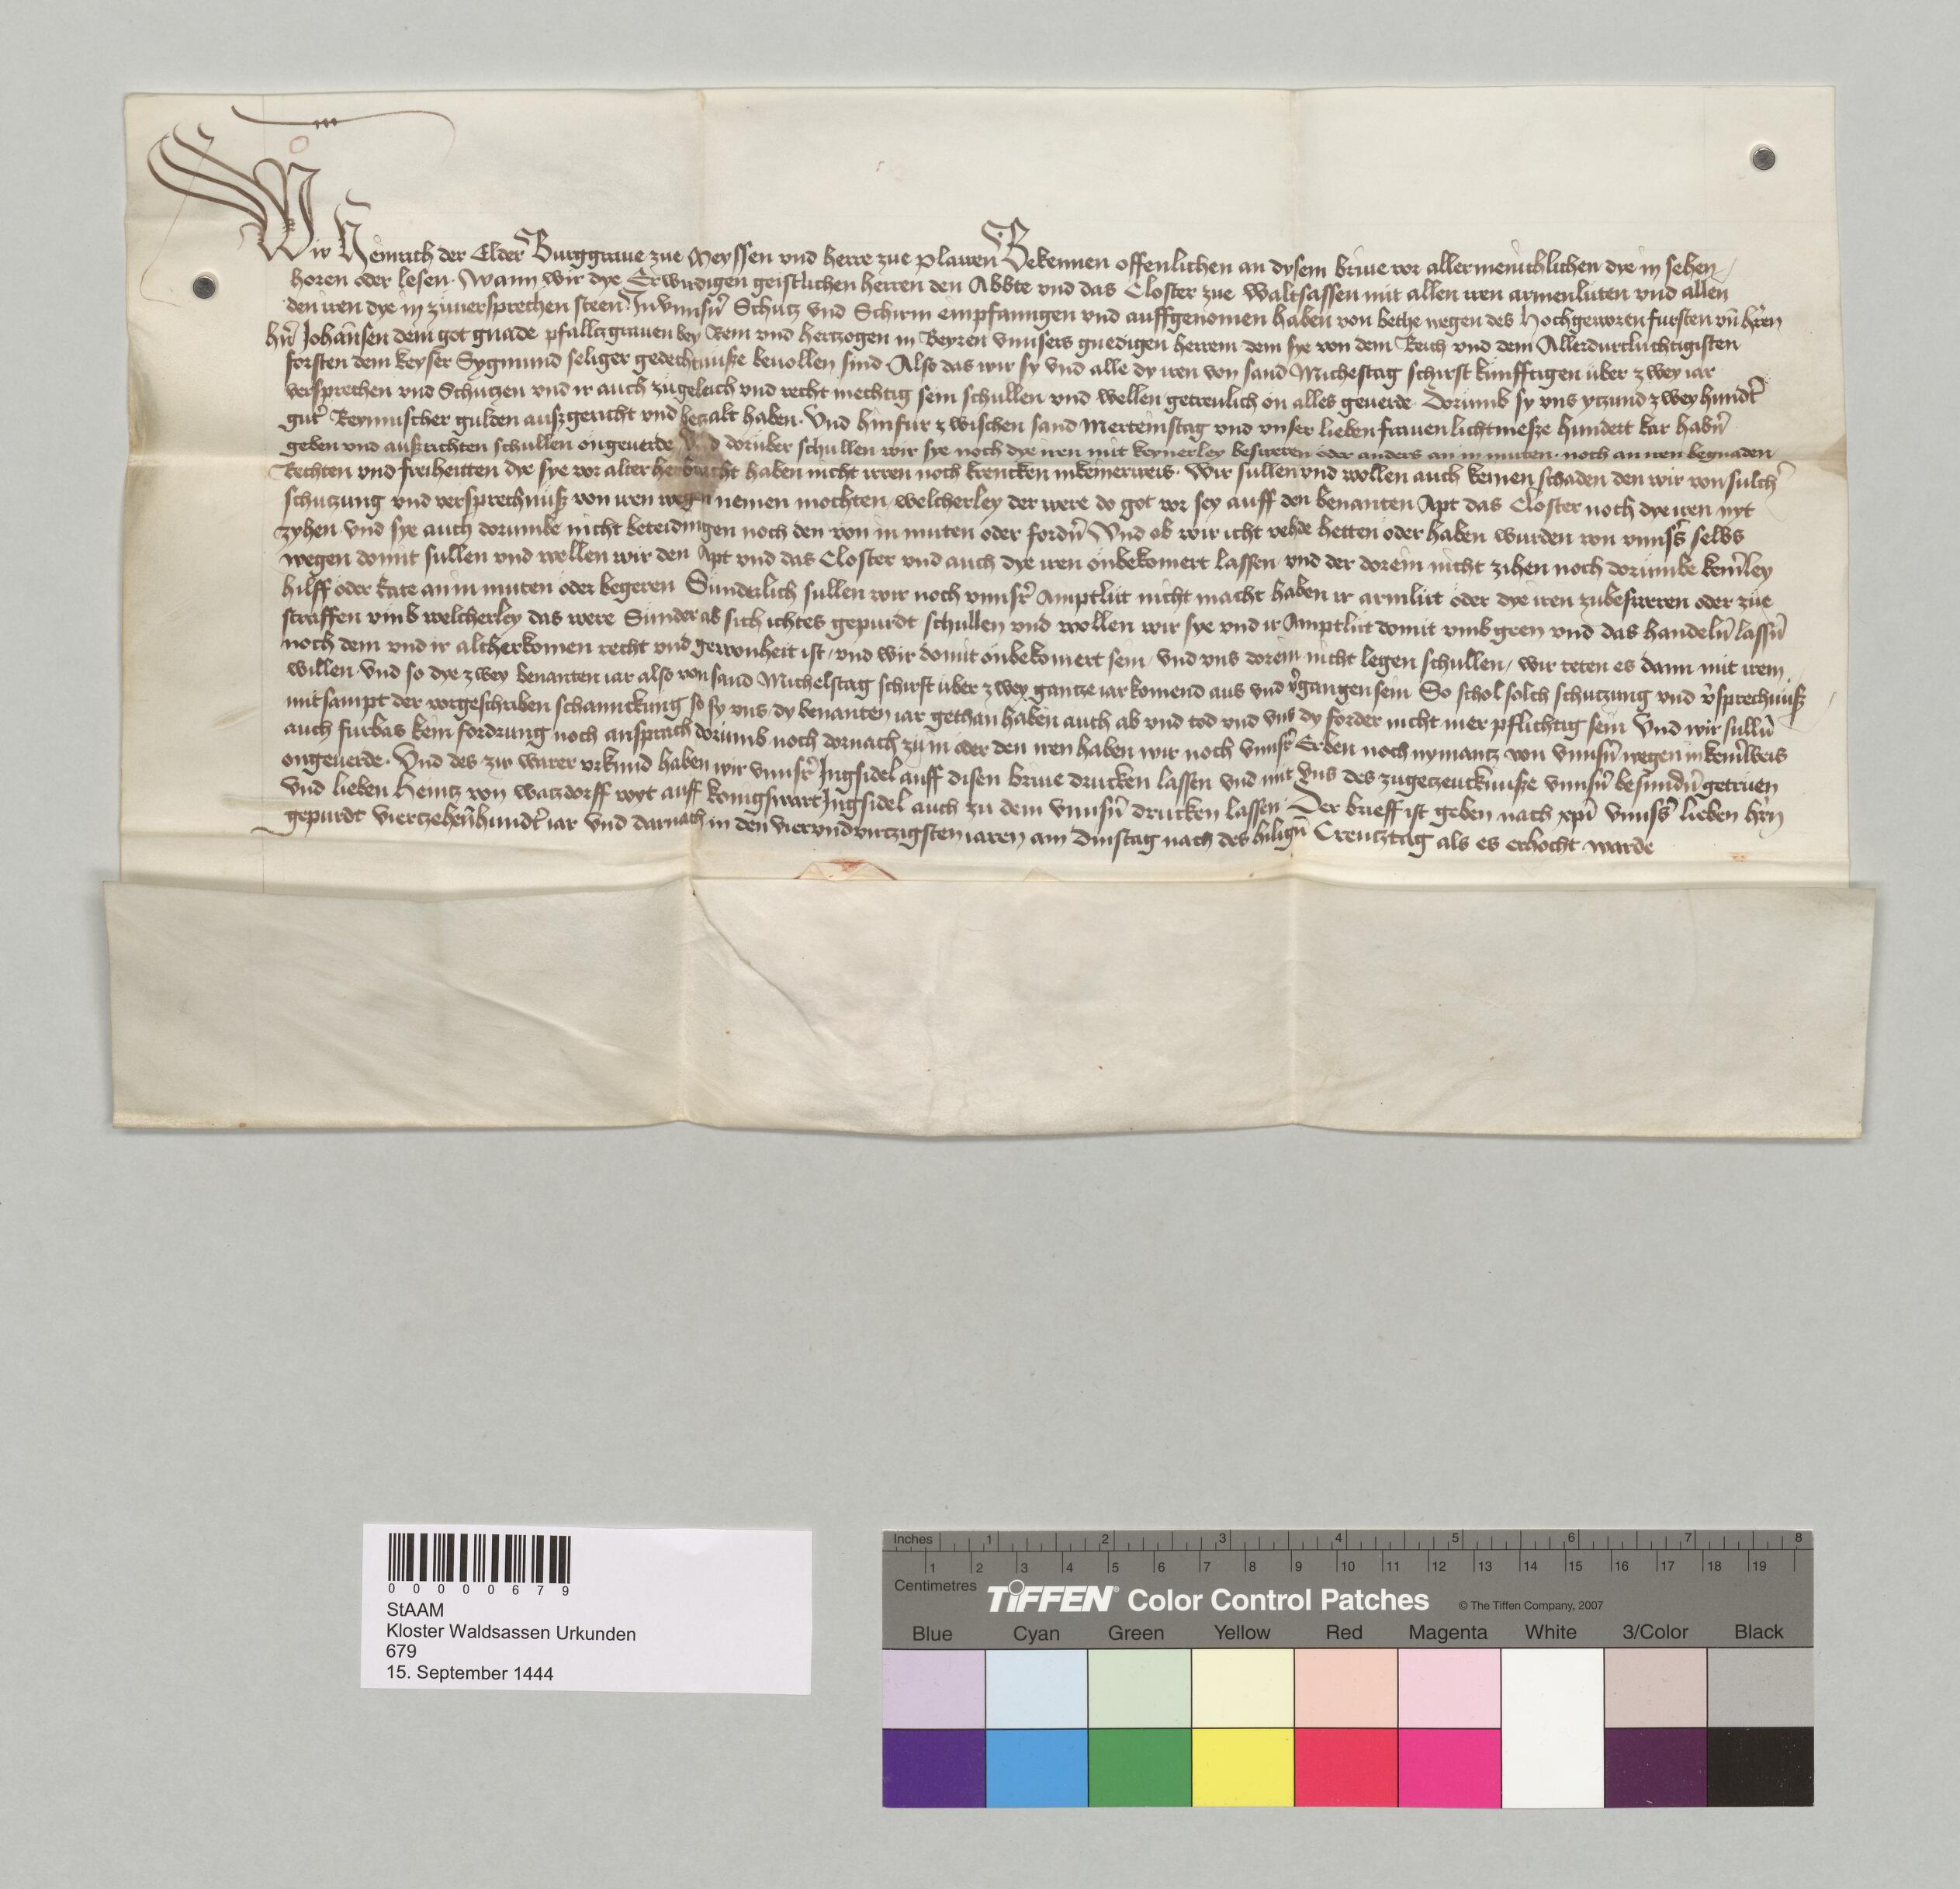 Wir Heinrich der Elder Burggraue zue Meyssen vnd herre zue plawen Bekennen offenlichen an dysem briue vor allermeniclichen dye in sehen
horen oder lesen. Wann wir dye Erwirdigen geistlichen herren den Abbte vnd das Closter zue Waltsassen mit allen iren armenluten vnd allen
den iren dye in zuuersprechen steen In vnnsn̄ Schutz vnd Schirm empfanngen vnd auffgenomen haben von bethe wegen des Hochgeworen fursten vn̄ hr̄en
hn̄ Johansen dem got gnade pfalltzgrauen bey Rein vnd hertzogen in Beyren vnnsers gnedigen herrem dem sye von dem Reich vnd dem Allerdurcluchtigisten
forsten dem keyser Sygmund seliger gedechtnuße beuollen sind. Also das wir sy vnd alle dy iren von sand Michestag schirst kunfftigen uber zwey iar
versprechen vnd Schutzen vnd ir auch zugeleich vnd recht mechtig sein schullen vnd wellen getreulich on alles geuerde Dorumb sy vns ytzund zwey hundt̄
gut̄ Reynnischer gulden außgericht vnd betzalt haben. Vnd hinfur zwischen sand Merteinstag vnd vnser lieben frauen lichtmesze hundert kar habn̄
geben vnd außrichten schullen ongeuerde Vnd doruber schullen wir sye noch dye iren mit keynerley besweren oder anders an in muten. noch an iren begnaden
Rechten vnd freiheitten dye sye vor alter herbracht haben nicht irren noch krencken inkeinerweis. Wir sullen vnd wollen auch keinen schaden den wir von sulch̄
schutzung vnd versprechnuß von iren wegen nemen mochten, welcherley der were do got vor sey auff den benanten Apt das Closter noch dye iren nyt
zyhen vnd sye auch dorumbe nicht beteidingen noch den von in muten oder fordn̄ Vnd ob wir icht vehde hetten oder haben wurden von vnnss̄ selbs
wegen domit sullen vnd wollen wir den Apt vnd das Closter vnd auch dye iren onbekomert lassen vnd der dorein nicht zihen noch dorumbe kein̄ley
hilff oder Rate an in muten oder begeren Sunderlich sullen wir noch vnnsr̄ Amptlut nicht macht haben ir armlut oder dye iren zubesweren oder zue
straffen vmb welcherley das were Sunder ab sich ichtes gepurdt schullen vnd wollen wir sye vnd ir Amptlut domit vmbgeen vnd das handeln̄ lassn̄
noch dem vnd ir altherkomen recht vnd gewonheit ist, vnd wir domit onbekomert sein, vnd vns dorein nicht legen schullen, wir teten es dann mit irem
willen. Vnd so dye zwey benanten iar also von sand Michelstag schirst uber zwey gantze iar komend aus vnd v̄gangen sein So schol solch schutzung vnd v̄sprechnuß
mitsampt der vorgeschriben schannckung so sy vns dy benanten iar gethan haben auch ab vnd tod vnd vns dy forder nicht mer pflichtig sein Vnd wir sulln̄
auch furbas kein fordrung noch ansprach dorumb noch dornach zu in oder den iren haben wir noch vnnsr̄ Erben noch nymantz von vnnsn̄ wegen in kein̄weis
ongeuerde. Vnd des zu warer vrkund haben wir vnnsr̄ Ingsidel auff disen briue drucken lassen vnd mit vns des zugetzeucknuße vnnsn̄ besundn̄ getruen
vnd lieben Heintz von watzdorff voyt auff konigswart Ingsidel auch zu dem vnnsn̄ drucken lassen Der brieff ist geben nach xpī vnnss̄ lieben hr̄n
gepurdt viertzehen̄hundt̄ iar vnd darnach in den viervndvirtzigsten iaren am Dinstag nach des hilign̄ Creutztag als es erhocht warde
00000679
StAAM
Kloster Waldsassen Urkunden
679
15. September 1444
Inches 1 2 3 4 5 6 7 8
1 2 3 4 5 6 7 8 9 10 11 12 13 14 15 16 17 18 19
Centimetres
TIFFEN® Color Control Patches © The Tiffen Company, 2007
Blue Cyan Green Yellow Red Magenta White 3/Color Black